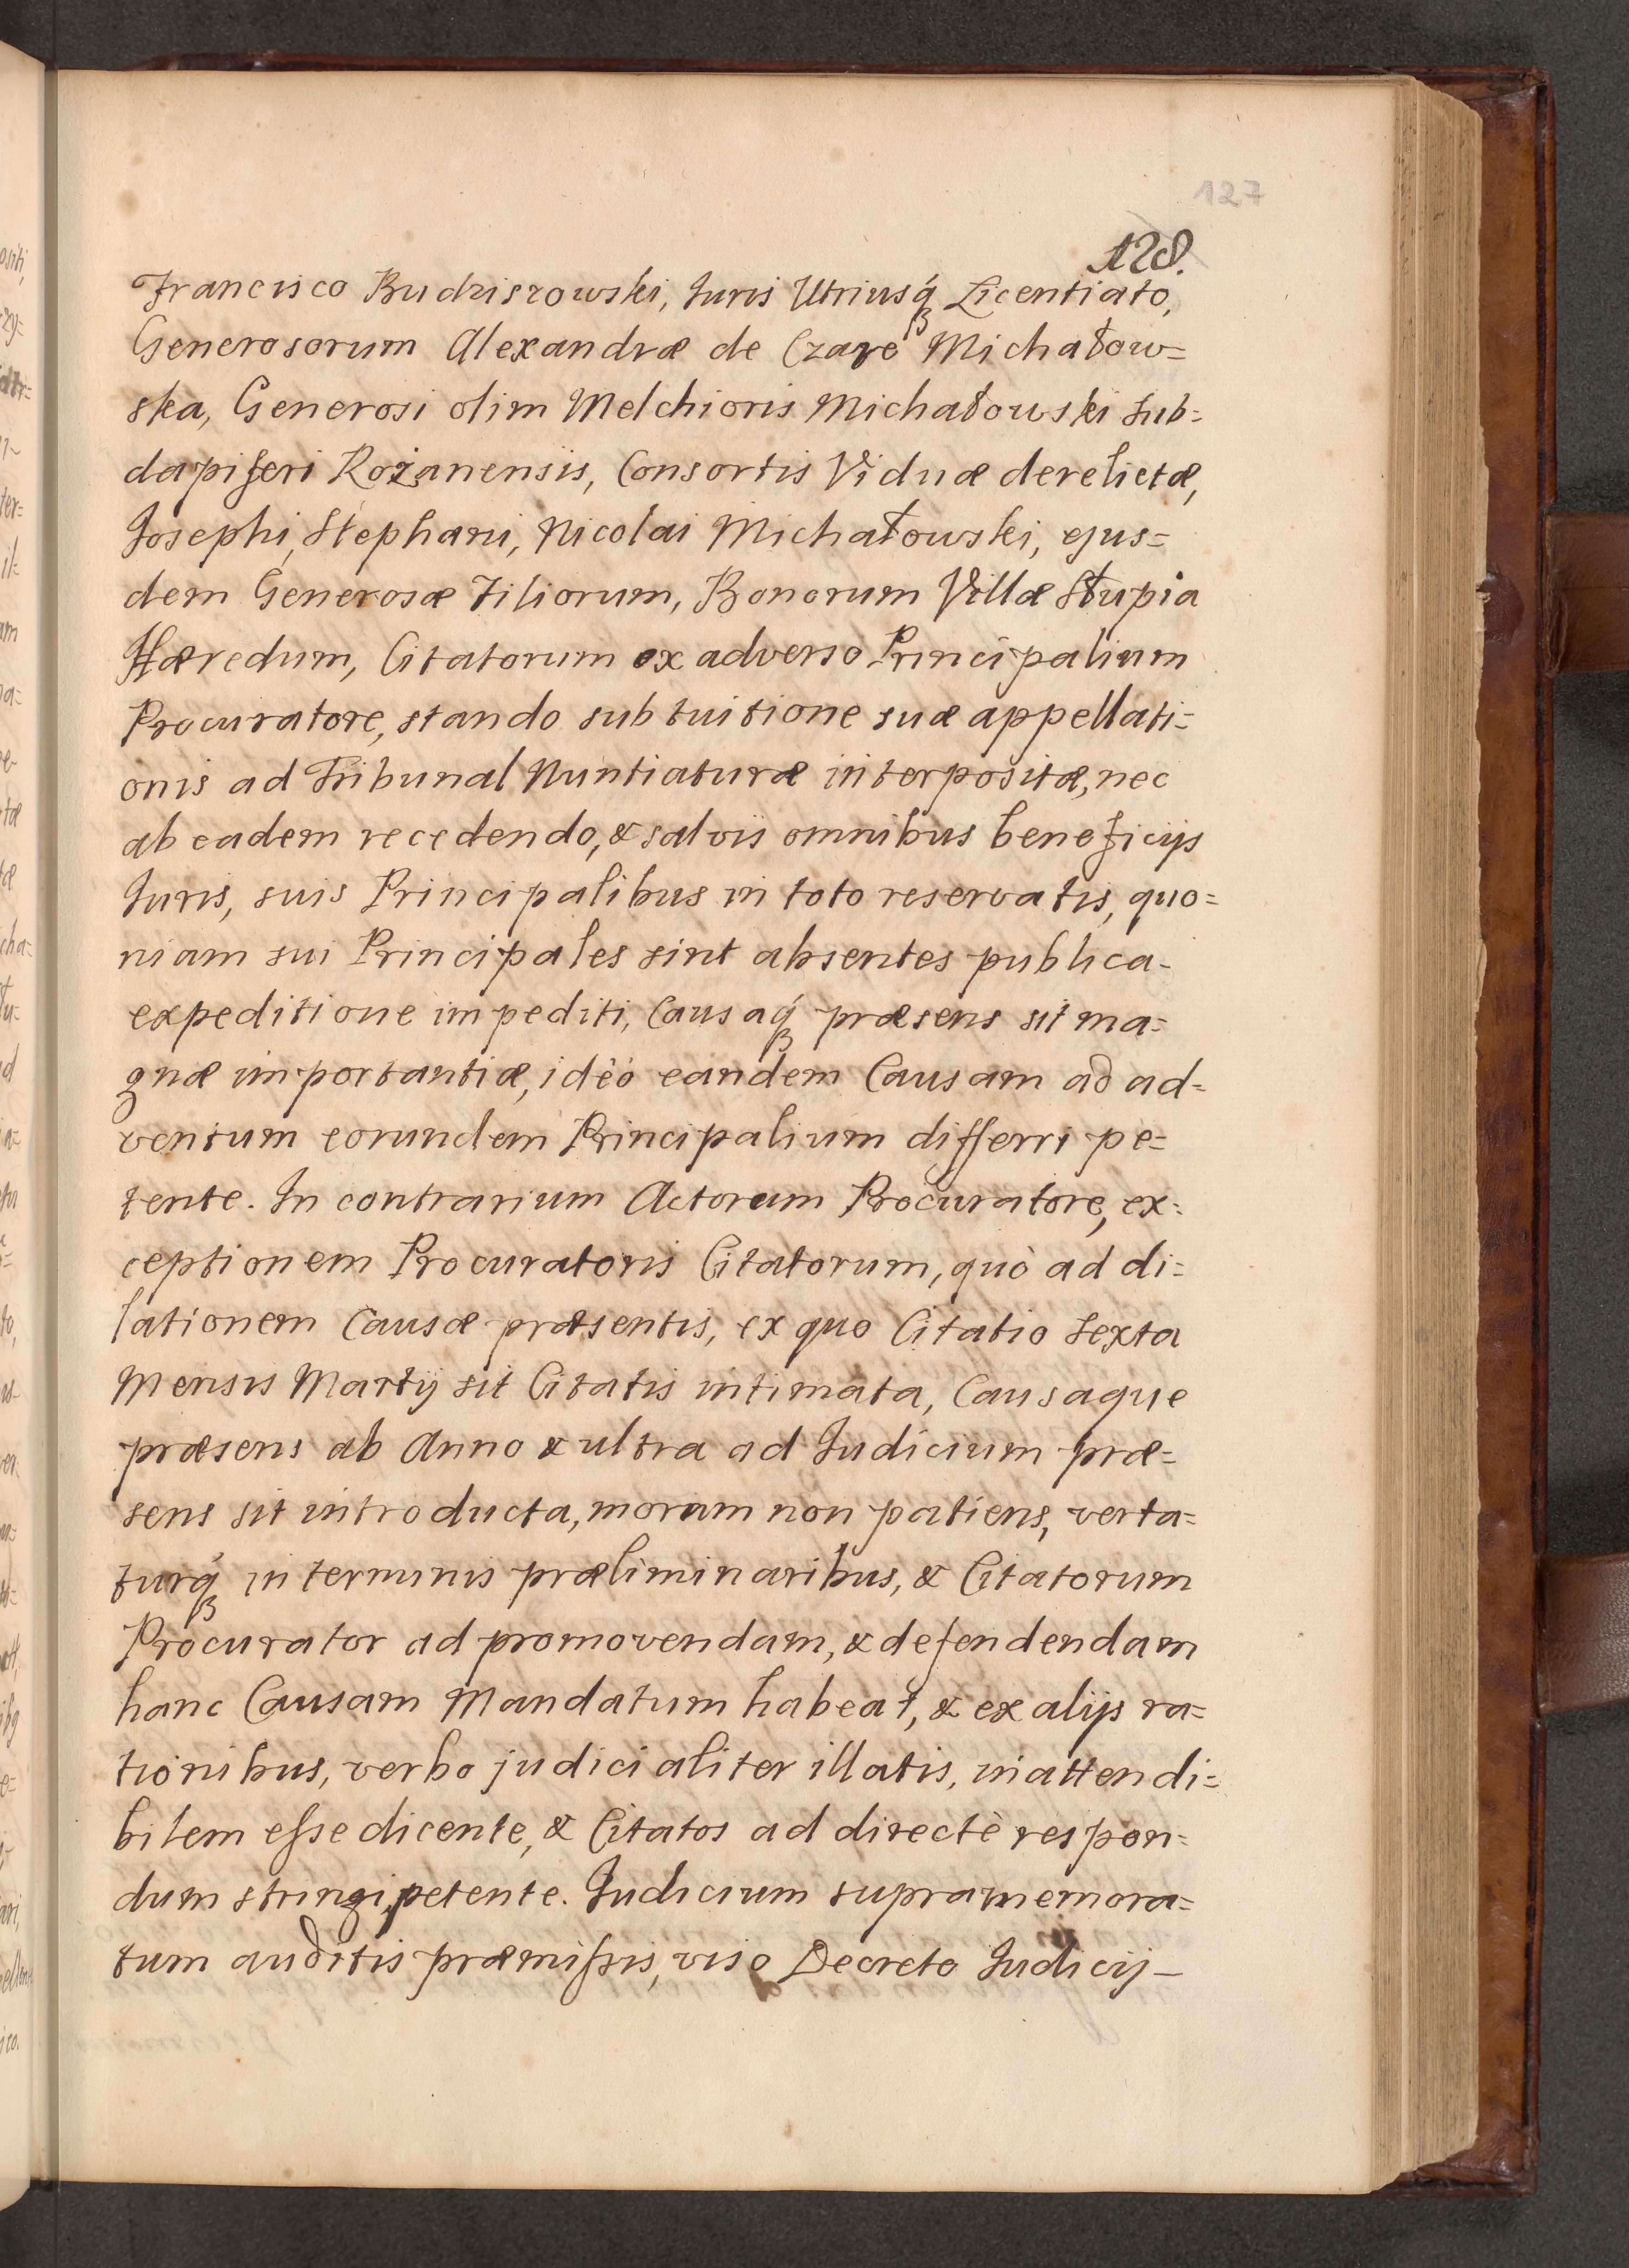 127
128.
Francisco Budziszowski, Juris Utriusq́ꝫ Licentiato,
Generosorum Alexandræ de Czare Michałow=
ska, Generosi olim Melchioris Michałowski Sub=
dapiferi Rożanensis, Consortis Viduæ derelictæ,
Josephi, Stephani, Nicolai Michałowski, ejus=
dem Generosæ Filiorum, Bonorum Villæ Słupia
Hæredum, Citatorum ex adverso Principalium
Procuratore, stando sub tuitione suæ appellati=
onis ad Tribunal Nuntiaturæ interpositæ, nec
ab eadem recedendo, & salvis omnibus beneficijs
Juris, suis Principalibus in toto reservatis, quo=
niam sui Principales sint absentes publica
expeditione impediti, Causaq́ꝫ præsens sit ma=
gnæ importantiæ, idèo eandem Causam ad ad=
ventum eorundem Principalium differri pe=
tente. In contrarium Actorum Procuratore, ex=
ceptionem Procuratoris Citatorum, quò ad di=
lationem Causæ præsentis, ex quo Citatio Sexta
Mensis Martij sit Citatis intimata, Causaque
præsens ab Anno & ultra ad Judicium præ=
sens sit introducta, moram non patiens, verta=
turq́ꝫ in terminis præliminaribus, & Citatorum
Procurator ad promovendam, & defendendam
hanc Causam Mandatum habeat, & ex alijs ra=
tionibus, verbo judicialiter illatis, inattendi=
bilem esse dicente, & Citatos ad directè respon=
dum stringi petente. Judicium supramemora=
tum auditis præmissis, viso Decreto Judicij